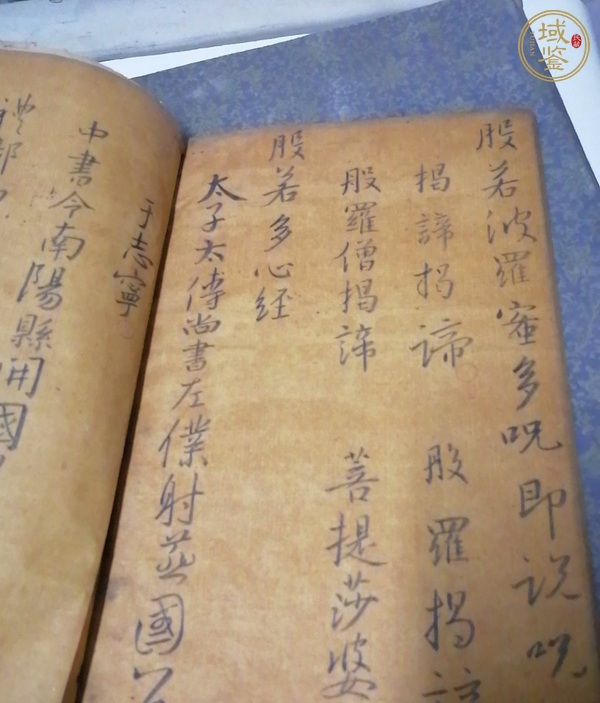 般若波羅蜜多呪即説呪
揭諦揭諦 般羅揭諦
般羅僧揭諦 菩提莎婆
般若多心經
太子太傅尚書左僕射並國公
于志寧
中書令南陽縣開國
禮部
域鉴